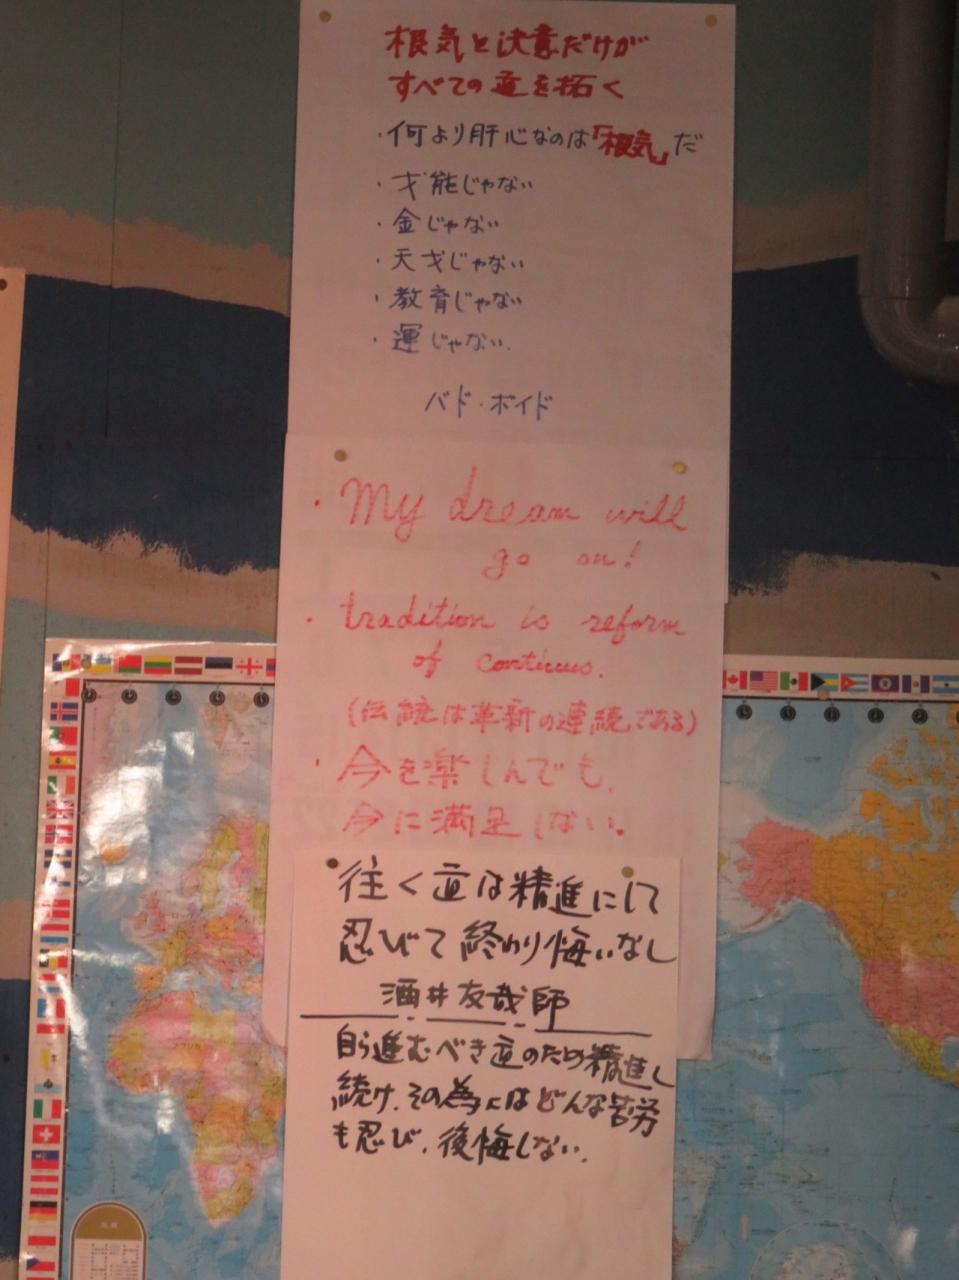 根気と決意だけが
すべての道を拓く
・何より肝心なのは「根気」だ
・才能じゃない
・金じゃない
・天才じゃない
・教育じゃない
・運じゃない.
バド・ボイド
・My dream will
go on!
・tradition is reform
of continus.
(伝統は革新の連続である)
・今を楽しんでも、
今に満足しない。
往く道は精進にして
忍びて終わり悔いなし
酒井友哉師
自ら進むべき道のため精進し
続け、その為にはどんな苦労
も忍び、後悔しない.
アフリカ